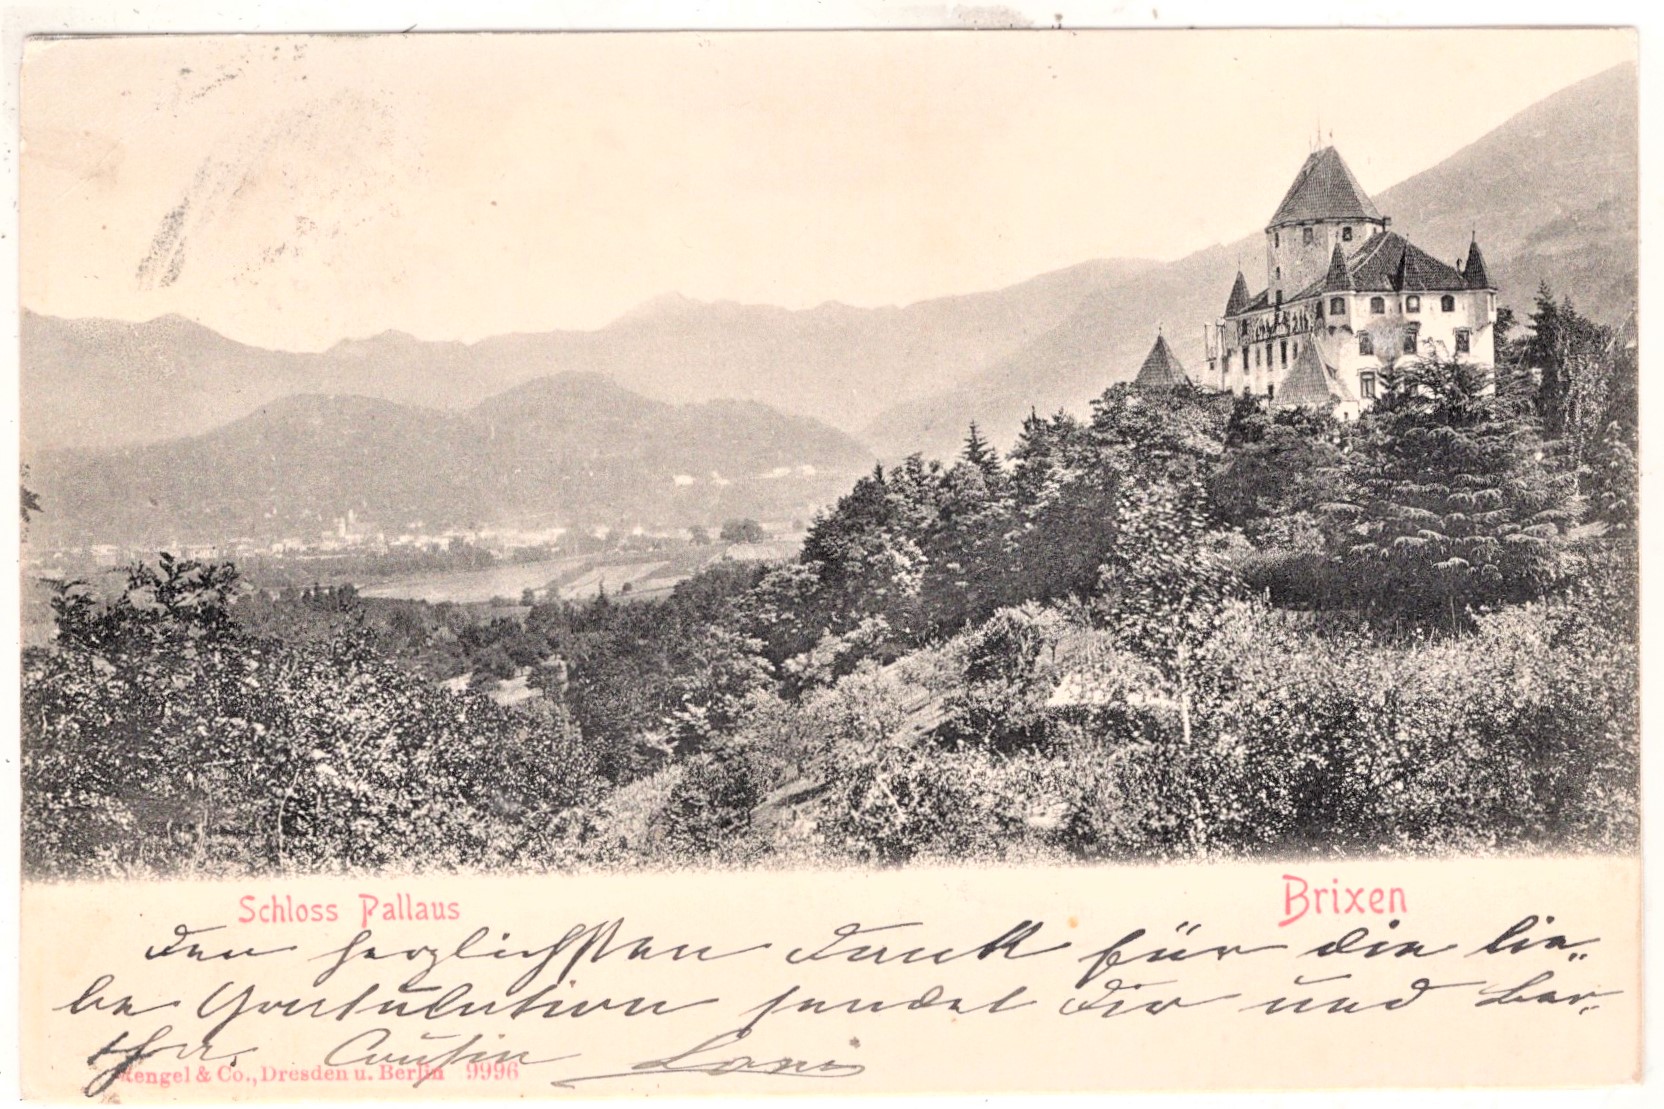 Schloss Pallaus
Brixen
Den herzlichsten Dank für die lie-
be Gratulation sendet Dir und Ber-
tha, Cousin
Stengel & Co., Dresden u. Berlin 9996